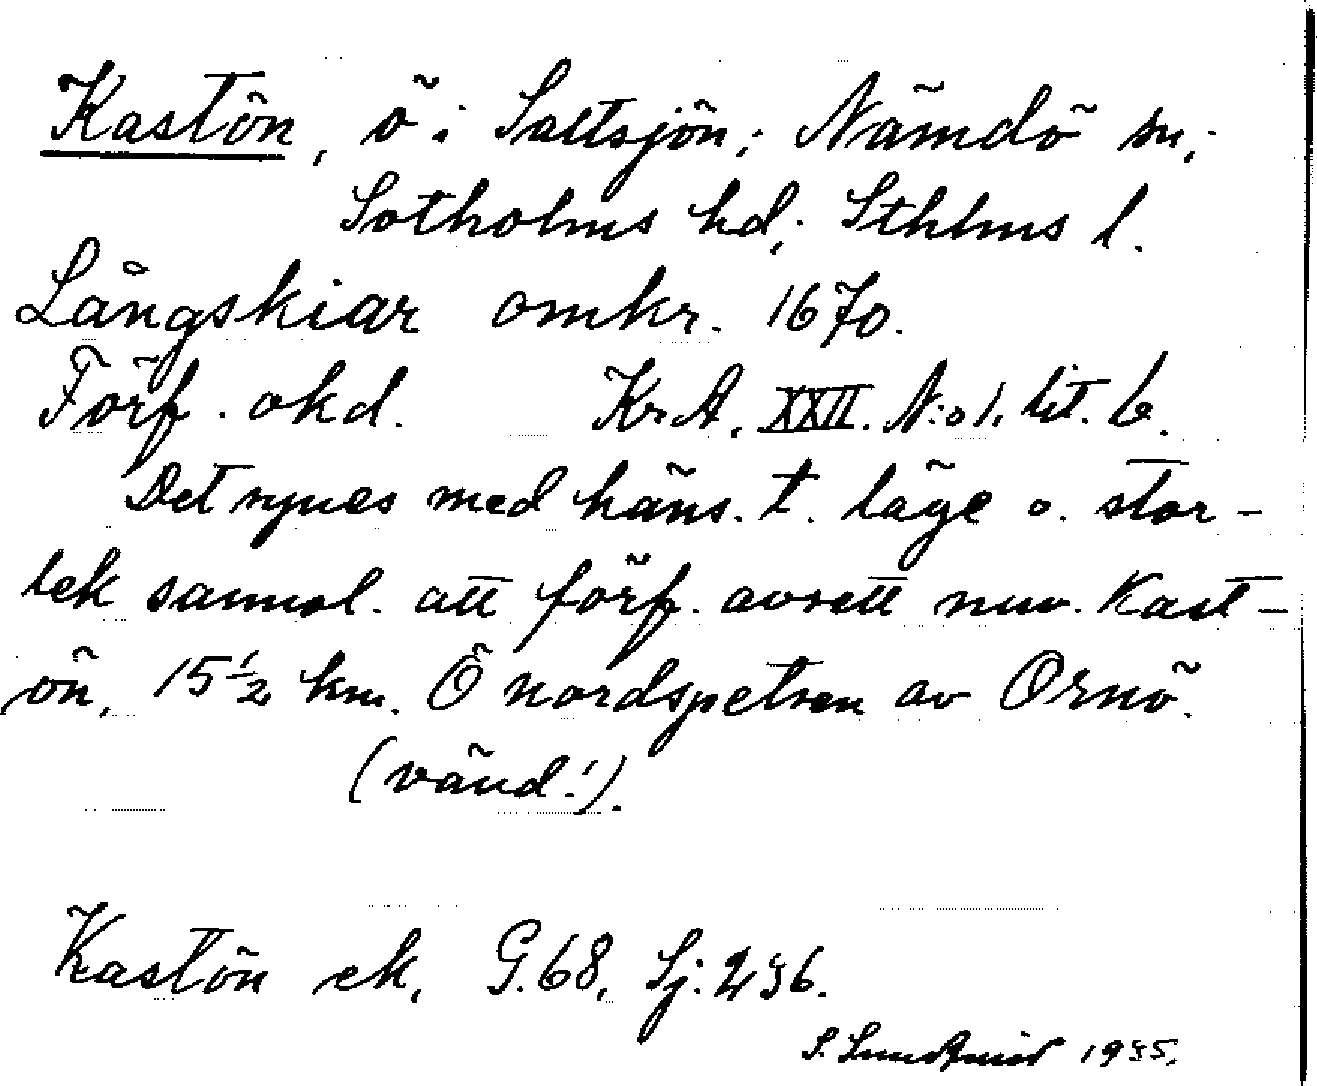 Kastön, ö i Saltsjön; Nämdö sn;
Sotholms hd; Sthlms l.
Långskiar omkr. 1670.
Förf. okd. Kr.A. XXII. N:o 1. lit. b.
Det synes med häns. t. läge o. stor-
lek sannol. att förf. avsett nuv. Kast-
ön, 15 1/2 km. Ö nordspetsen av Ornö.
(vänd!).
Kastön ek. G.68, Sj: 236.
S. 1935.